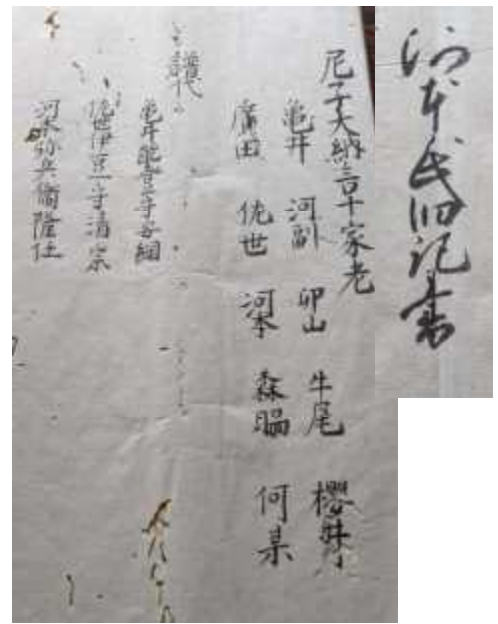 河本氏旧記書
尼子大納言十家老
亀井 河副 卯山 牛尾 櫻井
廣田 佐世 河本 森脇 何某
譜代
亀井能登守安綱
佐世伊豆守清宗
河本弥兵衛隆任